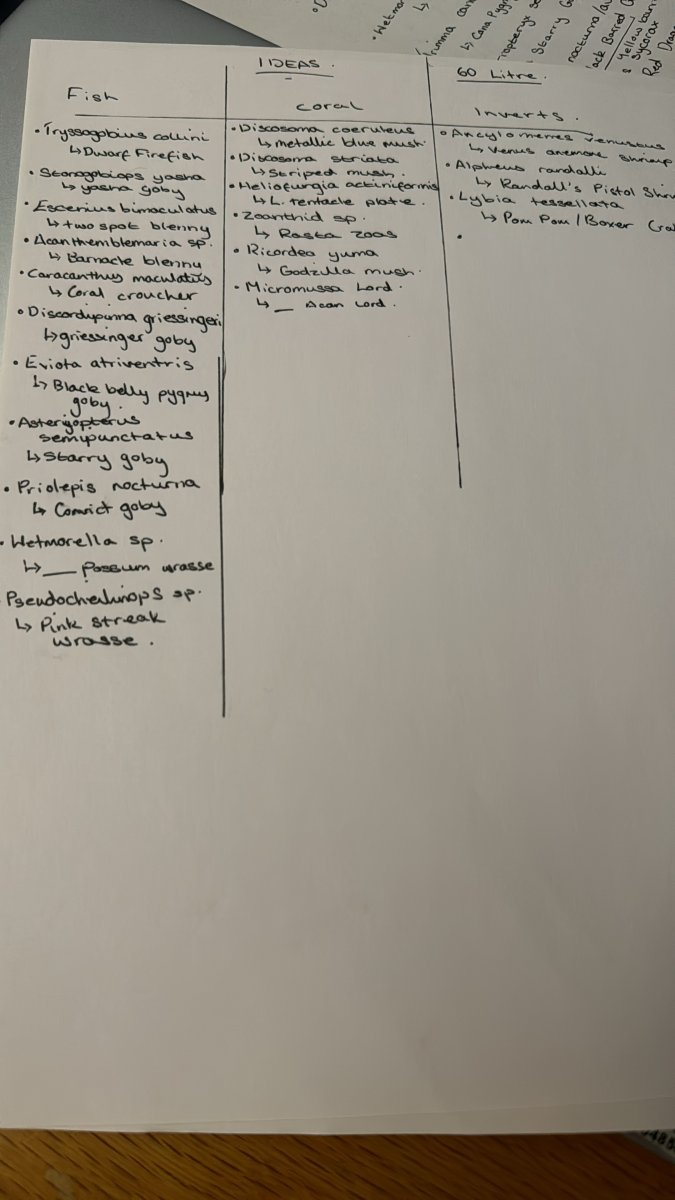 IDEAS.
60 Litre.
Fish
• Tryssogobius collini
↳ Dwarf Firefish
• Stonogobiops yasha
↳ yasha goby
• Escenius bimaculatus
↳ two spot blenny
• Acanthemblemaria sp.
↳ Barnacle blenny
• Caracanthus maculatus
↳ Coral croucher
• Discordipinna griessingeri
↳ griessinger goby
• Eviota atriventris
↳ Black belly pygmy
goby.
• Asteriopterus
semipunctatus
↳ Starry goby
• Priolepis nocturna
↳ Convict goby
• Wetmorella sp.
↳ __ Possum wrasse
Pseudocheilinops sp.
↳ Pink streak
wrasse.
Coral
• Discosoma coeruleus
↳ metallic blue mush
• Discosoma striata
↳ Striped mush.
• Heliofungia actiniformis
↳ L. tentacle plate.
• Zoanthid sp.
↳ Rasta zoas
• Ricordea yuma
↳ Godzilla mush.
• Micromussa Lord.
↳ __ Acan Lord.
Inverts.
• Ancylomenes venustus
↳ Venus anemone shrimp
• Alpheus randalli
↳ Randall's Pistol Shri
• Lybia tessellata
↳ Pom Pom / Boxer Cra
•
• Wetmor
↳ Cana Pygm
Starry G
nocturna/
ack Barred G
Yellow
Sycorax
Red Drag